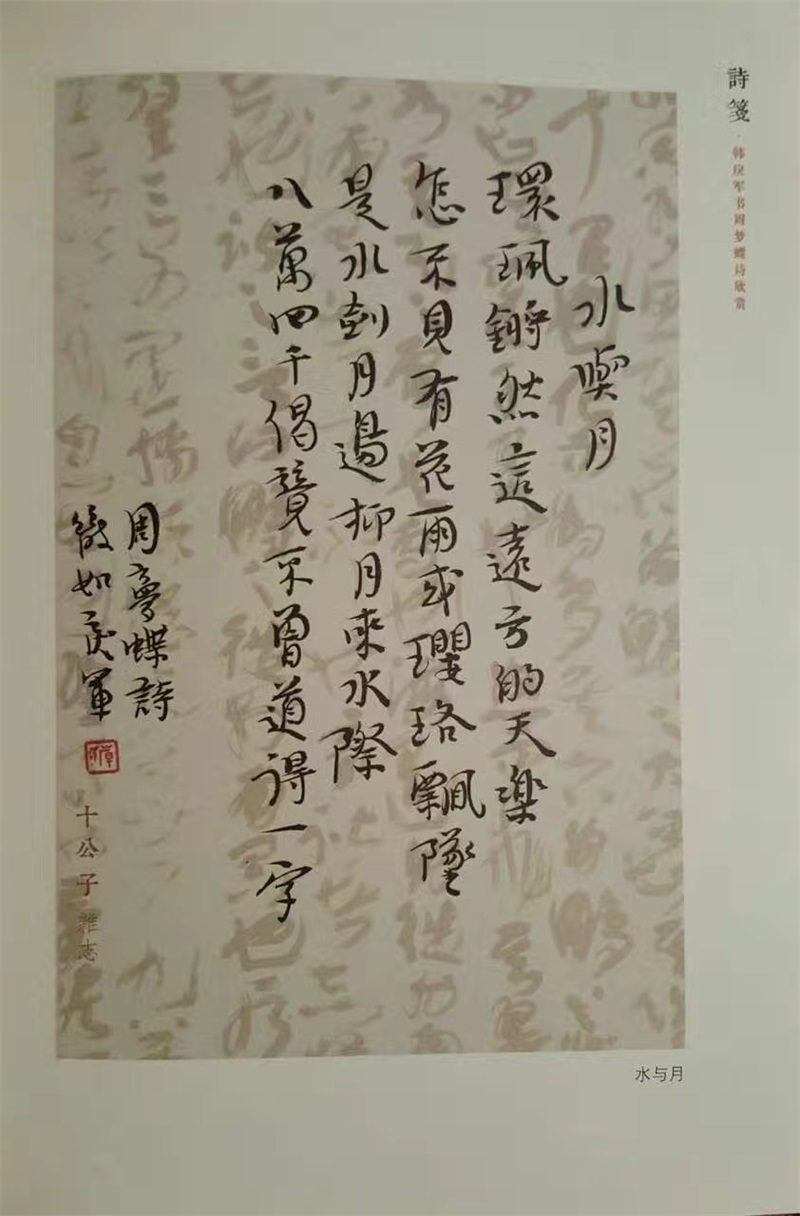 詩箋·韩庚军书周梦蝶诗欣赏
水與月
環珮鏘然這遠方的天樂
怎不見有花雨或瓔珞飄墜
是水到月邊抑月來水際
八萬四千偈竟不曾道得一字
周夢蝶詩
如庚軍
十公子雜志
水与月